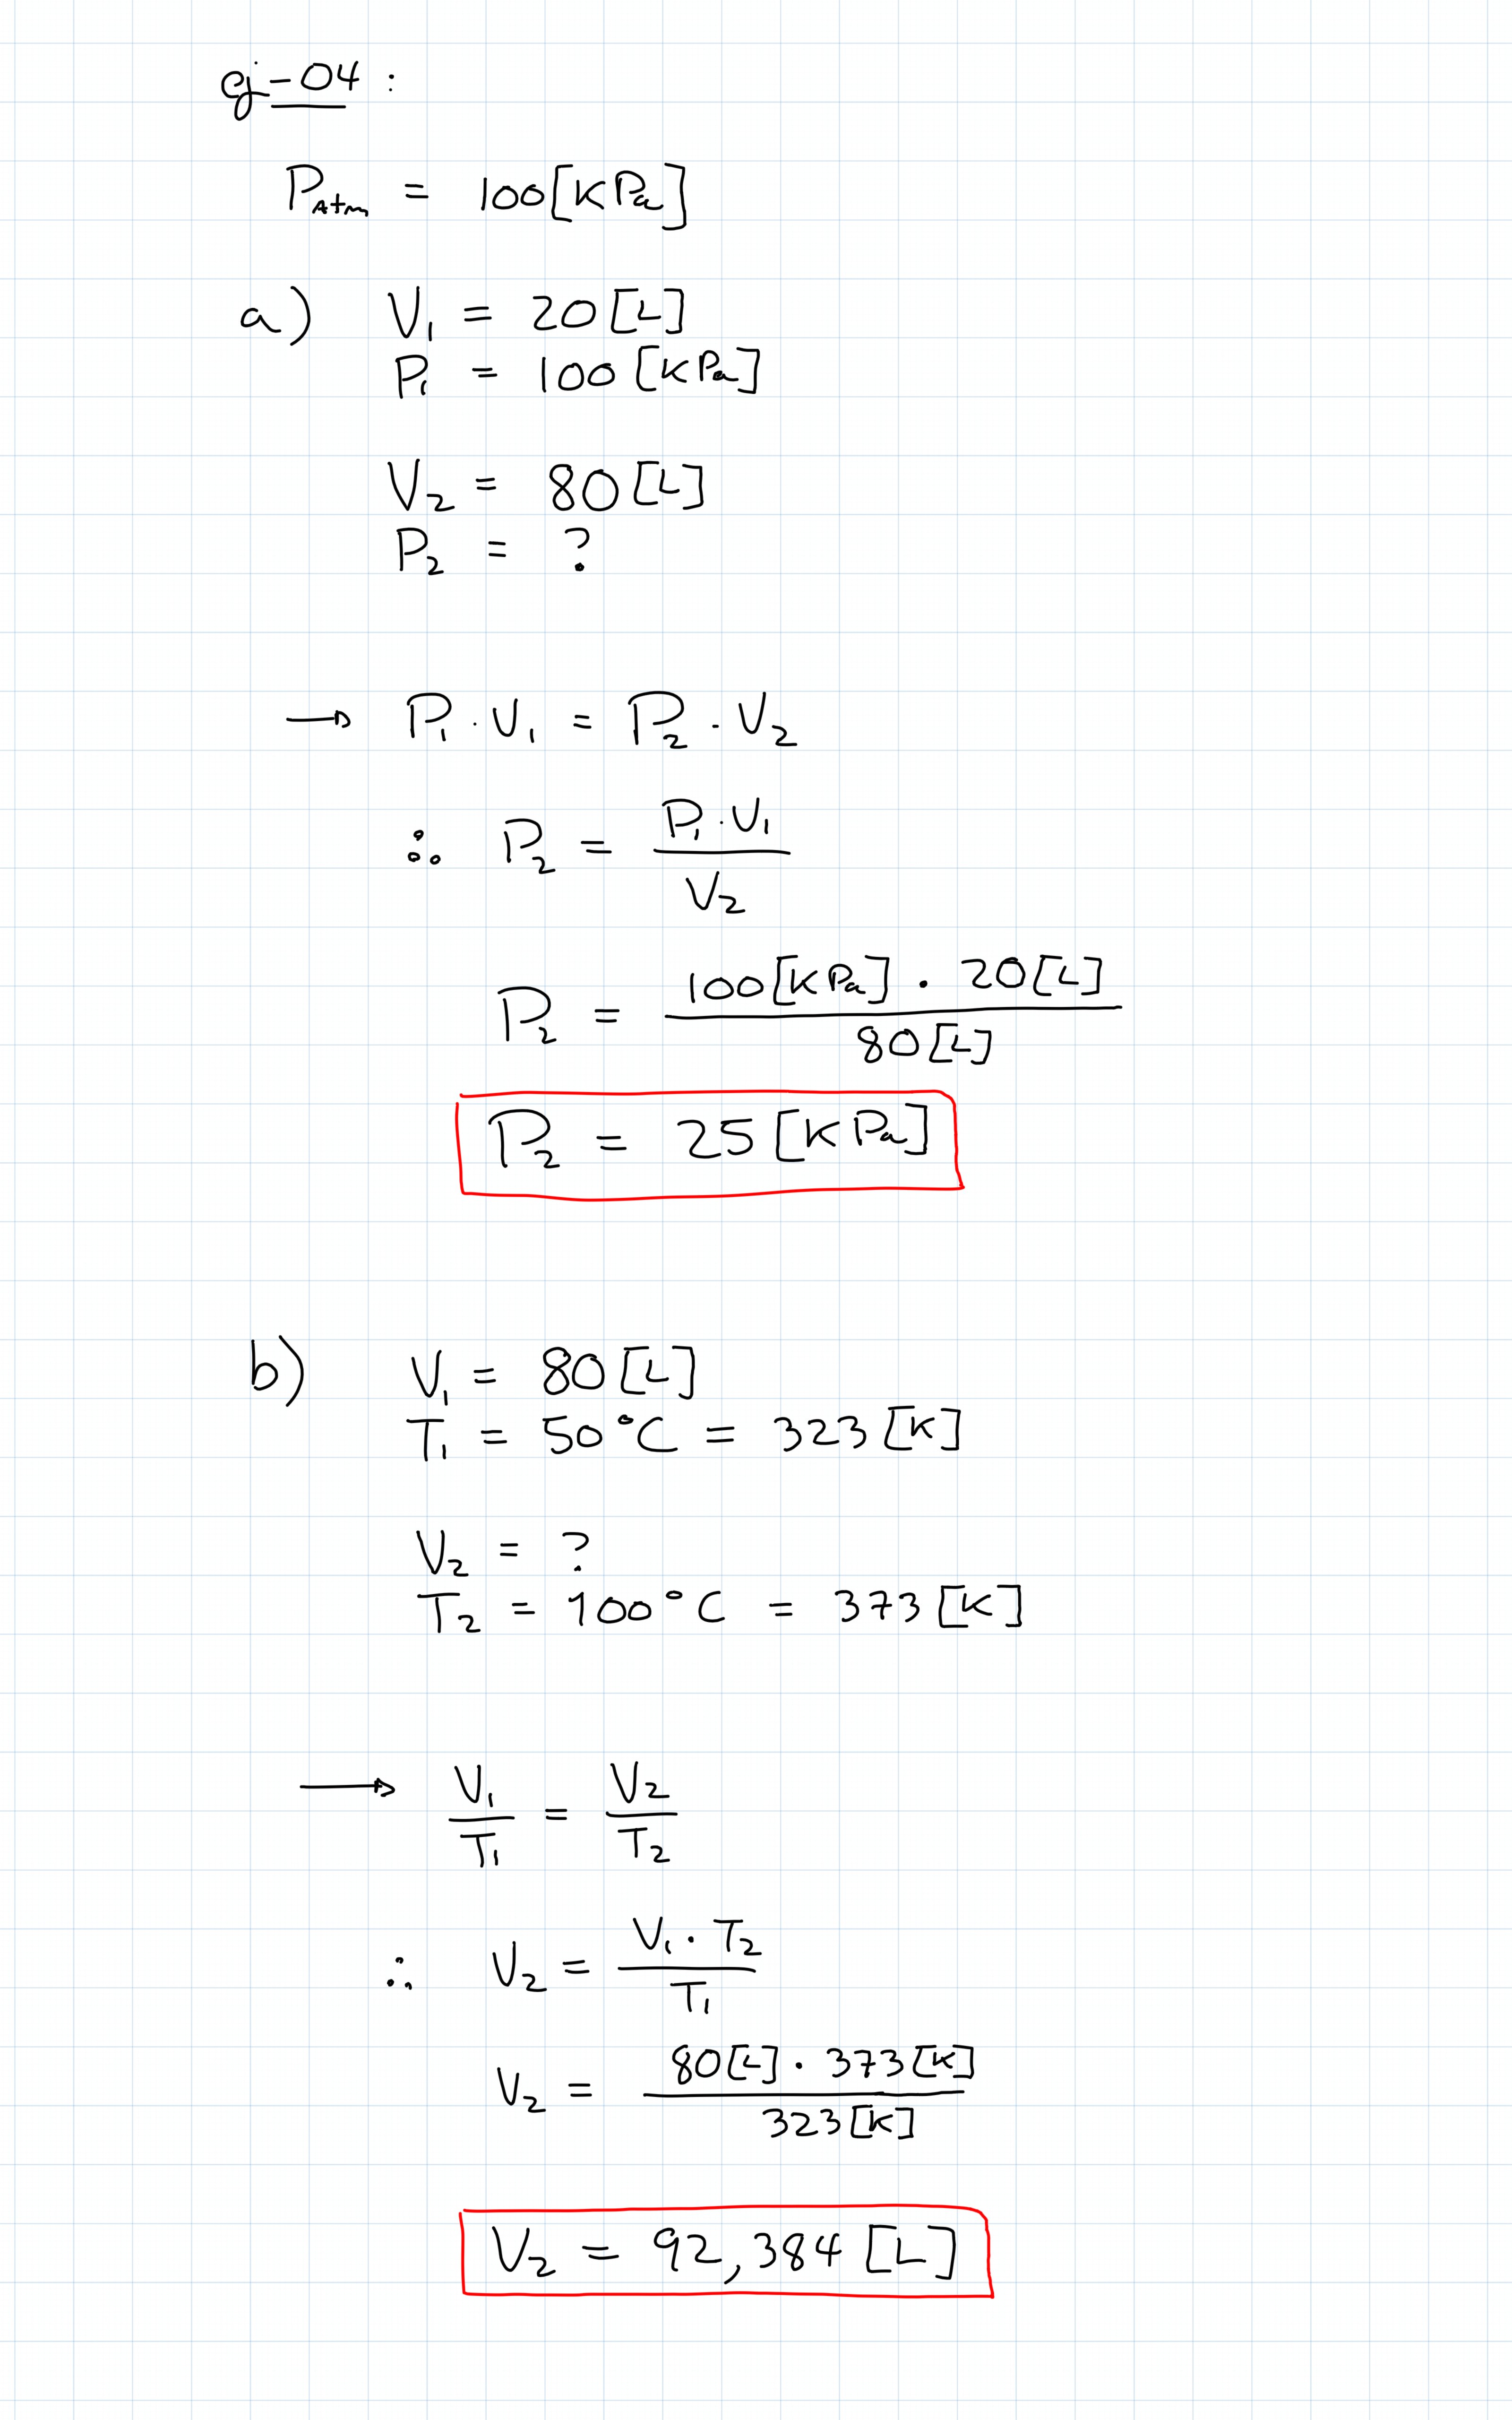 ej-04 :
P_Atm = 100 [KPa]
a) V₁ = 20 [L]
P₁ = 100 [KPa]
V₂ = 80 [L]
P₂ = ?
→ P₁ · V₁ = P₂ · V₂
∴ P₂ = P₁ · V₁ / V₂
P₂ = 100 [KPa] · 20 [L] / 80 [L]
P₂ = 25 [KPa]
b) V₁ = 80 [L]
T₁ = 50°C = 323 [K]
V₂ = ?
T₂ = 100°C = 373 [K]
→ V₁ / T₁ = V₂ / T₂
∴ V₂ = V₁ · T₂ / T₁
V₂ = 80 [L] · 373 [K] / 323 [K]
V₂ = 92,384 [L]